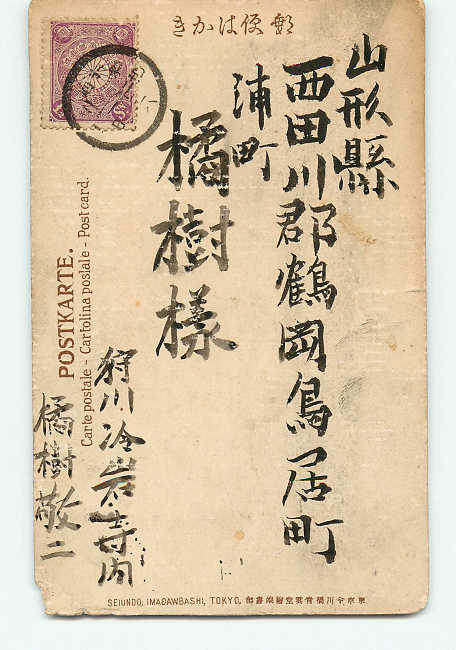 郵便はかき
山形縣
西田川郡鶴岡鳥居町
浦町
橘樹様
狩川冷岩寺内
橘樹敬二
POSTKARTE.
Carte postale - Cartolina postale - Postcard.
SEIUNDO, IMAGAWBASHI, TOKYO. 東京今川橋青雲堂繪端書部